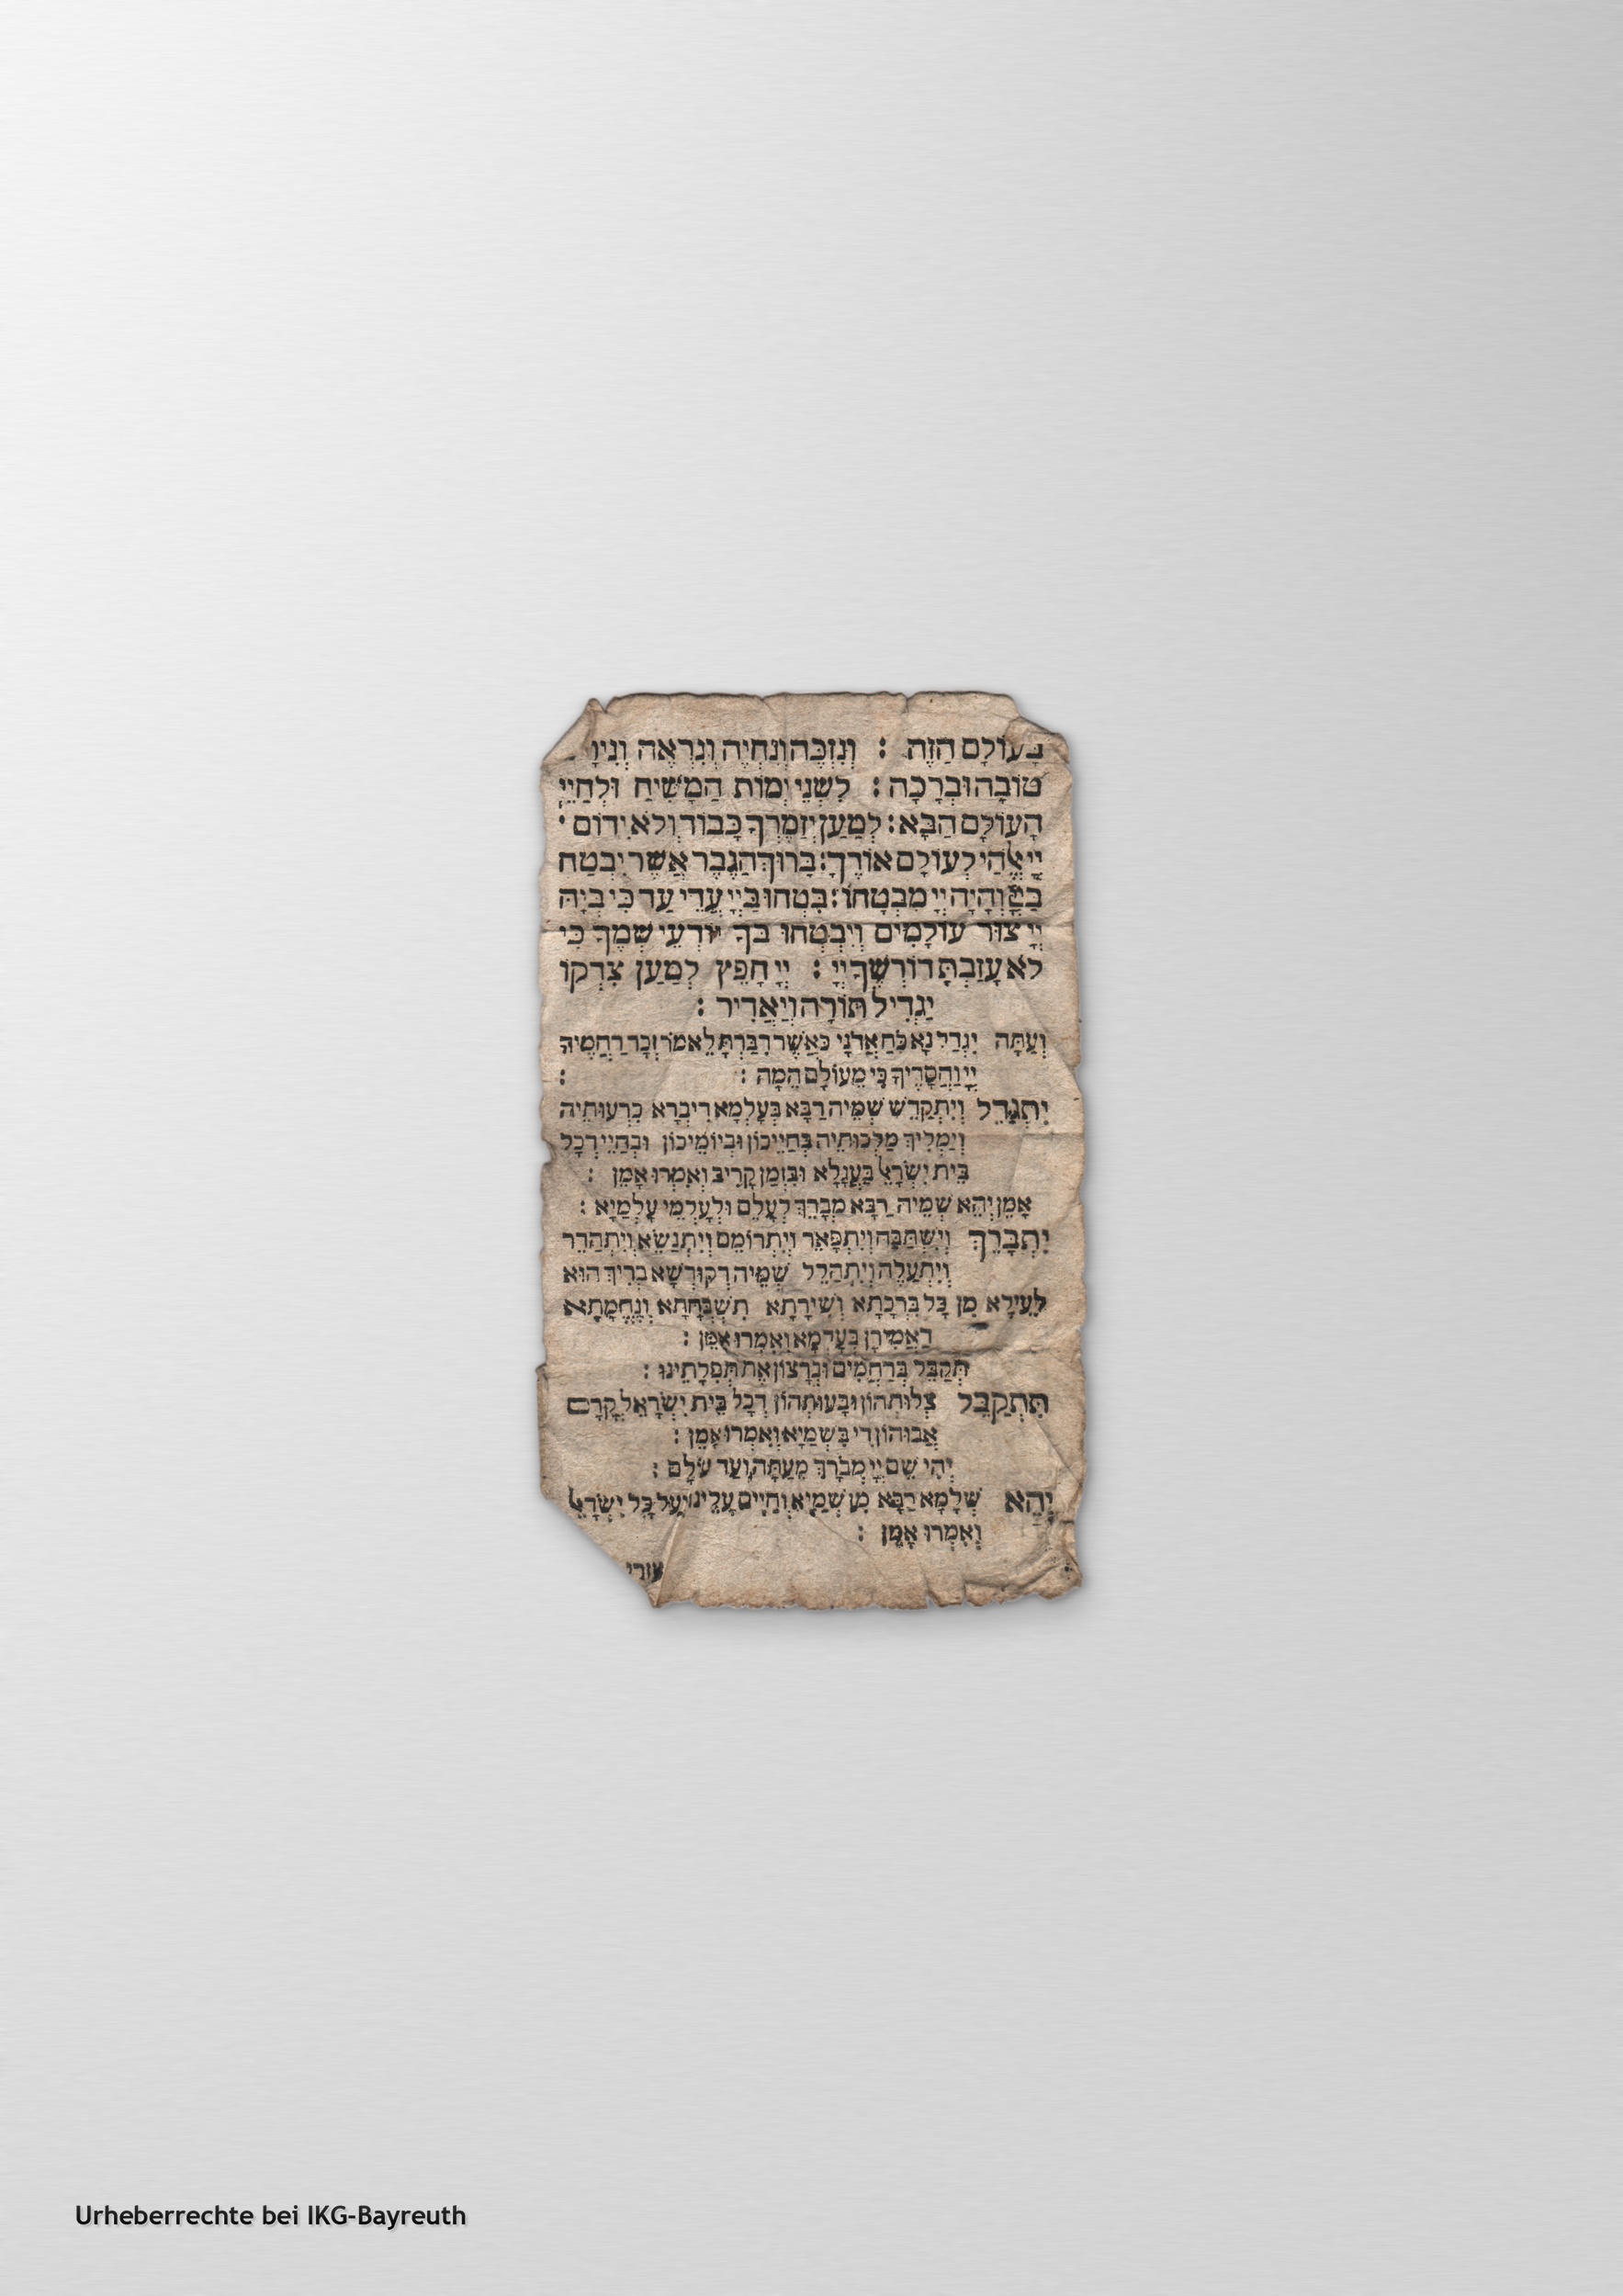 בָּעוֹלָם הַזֶּה : וְנִזְכֶּה וְנִחְיֶה וְנִרְאֶה
טוֹבָה וּבְרָכָה : לִשְׁנֵי יְמוֹת הַמָּשִׁיחַ וּלְחַיֵּי
הָעוֹלָם הַבָּא : לְמַעַן יְזַמֶּרְךָ כָּבוֹד וְלֹא יִדּוֹם ·
יְיָ אֱלֹהַי לְעוֹלָם אוֹרֶךָּ : בָּרוּךְ הַגֶּבֶר אֲשֶׁר יִבְטַח
בַּיְיָ וְהָיָה יְיָ מִבְטָחוֹ : בִּטְחוּ בַיְיָ עֲדֵי עַד כִּי בְיָהּ
יְיָ צוּר עוֹלָמִים וְיִבְטְחוּ בְךָ יוֹדְעֵי שְׁמֶךָ כִּי
לֹא עָזַבְתָּ דוֹרְשֶׁיךָ יְיָ : יְיָ חָפֵץ לְמַעַן צִדְקוֹ
יַגְדִּיל תּוֹרָה וְיַאֲדִיר :
וְעַתָּה יִגְדַּל נָא כֹּחַ אֲדֹנָי כַּאֲשֶׁר דִּבַּרְתָּ לֵאמֹר זְכֹר רַחֲמֶיךָ
יְיָ וַחֲסָדֶיךָ כִּי מֵעוֹלָם הֵמָּה : :
יִתְגַּדֵּל וְיִתְקַדֵּשׁ שְׁמֵיהּ רַבָּא בְּעָלְמָא דִּיבְרָא כִרְעוּתֵיהּ
וְיַמְלִיךְ מַלְכוּתֵיהּ בְּחַיֵּיכוֹן וּבְיוֹמֵיכוֹן וּבְחַיֵּי דְכָל
בֵּית יִשְׂרָאֵל בַּעֲגָלָא וּבִזְמַן קָרִיב וְאִמְרוּ אָמֵן :
אָמֵן יְהֵא שְׁמֵיהּ רַבָּא מְבָרַךְ לְעָלַם וּלְעָלְמֵי עָלְמַיָּא :
יִתְבָּרֵךְ וְיִשְׁתַּבַּח וְיִתְפָּאֵר וְיִתְרוֹמֵם וְיִתְנַשֵּׂא וְיִתְהַדֵּר
וְיִתְעַלֶּה וְיִתְהַלֵּל שְׁמֵיהּ דְּקוּדְשָׁא בְּרִיךְ הוּא
לְעֵילָא מִן כָּל בִּרְכָתָא וְשִׁירָתָא תִּשְׁבְּחָתָא וְנֶחֱמָתָא
דַּאֲמִירָן בְּעָלְמָא וְאִמְרוּ אָמֵן :
תְּקַבֵּל בְּרַחֲמִים וּבְרָצוֹן אֶת תְּפִלָּתֵינוּ :
תִּתְקַבֵּל צְלוֹתְהוֹן וּבָעוּתְהוֹן דְּכָל בֵּית יִשְׂרָאֵל קֳדָם
אֲבוּהוֹן דִּי בִּשְׁמַיָּא וְאִמְרוּ אָמֵן :
יְהִי שֵׁם יְיָ מְבֹרָךְ מֵעַתָּה וְעַד עוֹלָם :
יְהֵא שְׁלָמָא רַבָּא מִן שְׁמַיָּא וְחַיִּים עָלֵינוּ וְעַל כָּל יִשְׂרָאֵל
וְאִמְרוּ אָמֵן :
Urheberrechte bei IKG-Bayreuth